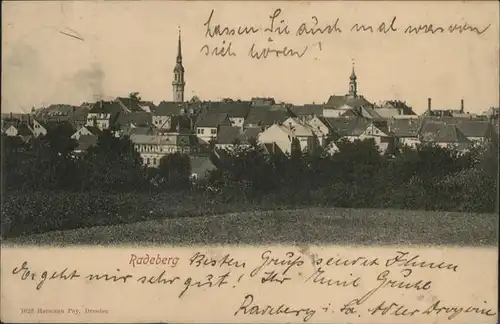 Lassen Sie auch mal was von
sich hören!
Radeberg Besten Gruss sendet Ihnen
Es geht mir sehr gut! Ihr Emil Gäbler
Radeberg i. Sa. Adler Drogerie
1628 Hermann Poy, Dresden